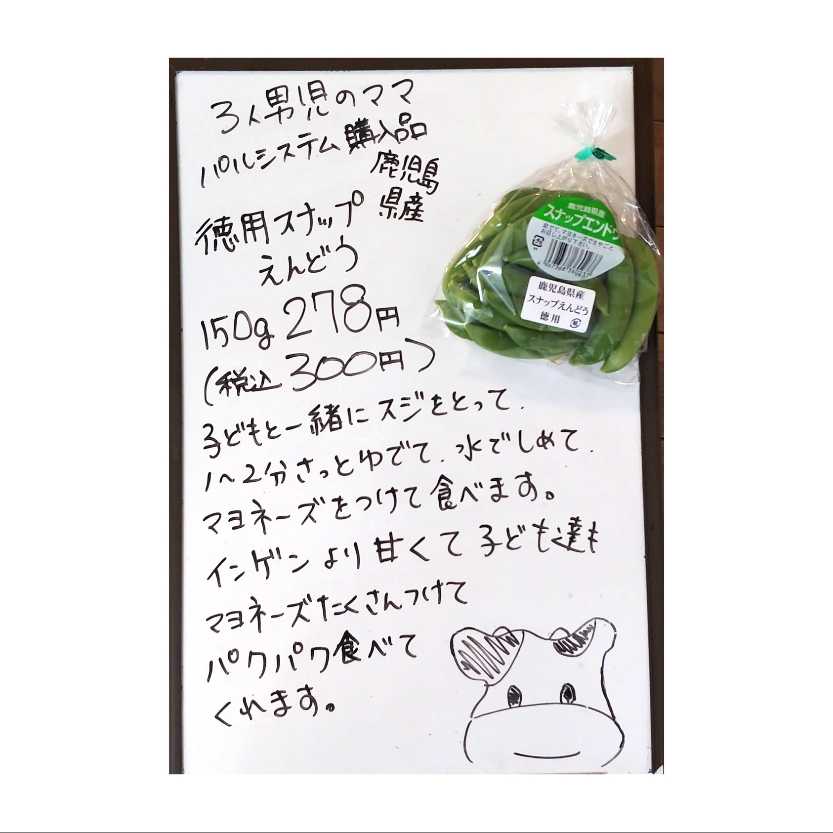 3人男児のママ
パルシステム購入品
鹿児島
県産
徳用スナップ
えんどう
150g 278円
(税込300円)
子どもと一緒にスジをとって、
1〜2分さっとゆでて、水でしめて、
マヨネーズをつけて食べます。
インゲンより甘くて子ども達も
マヨネーズたくさんつけて
パクパク食べて
くれます。
鹿児島県産
スナップエンドウ
鹿児島県産
スナップえんどう
徳用